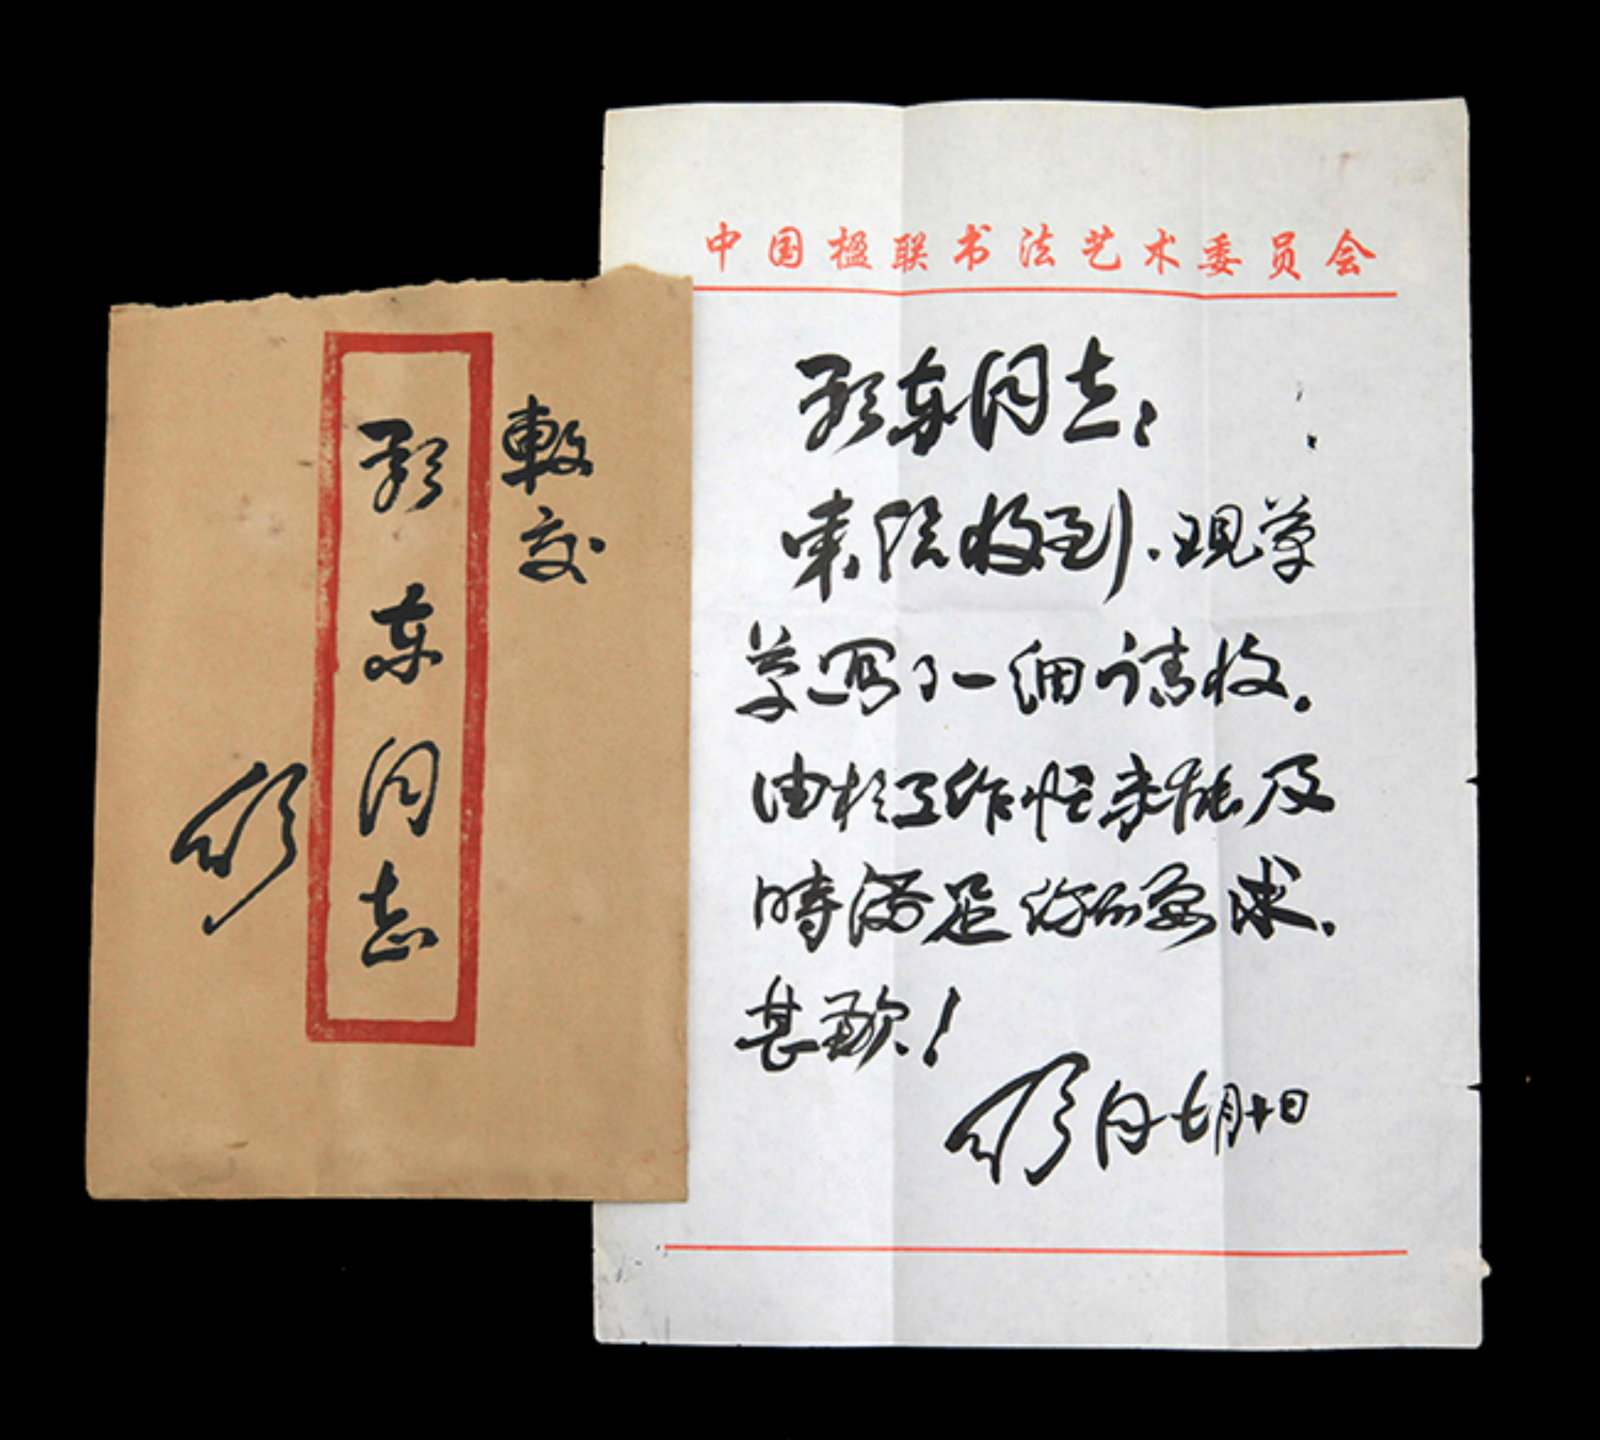 轉交
东同志
中国楹联书法艺术委员会
东同志：
来信收到.现草
草写了一请收.
由於工作忙未能及
時满足你的要求.
甚歉！
七月十日